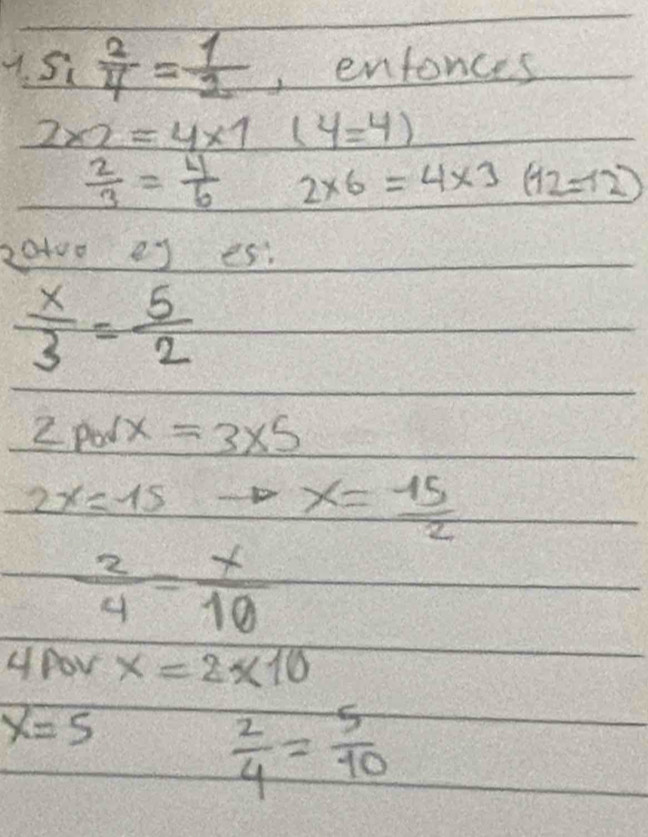 1. Si 2/4 = 1/2, entonces
2×2 = 4×1 (4=4)
2/3 = 4/6 2×6 = 4×3 (12=12)
2 otro ej es:
x/3 = 5/2
2 por x = 3×5
2x=15 → x= 15/2
2/4 = x/10
4 por x = 2×10
x=5 2/4 = 5/10